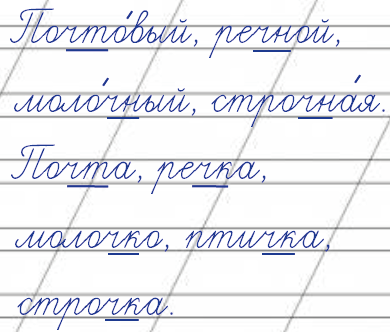 Почто́вый, речной,
моло́чный, строчна́я.
Почта, речка,
молочко, птичка,
строчка.